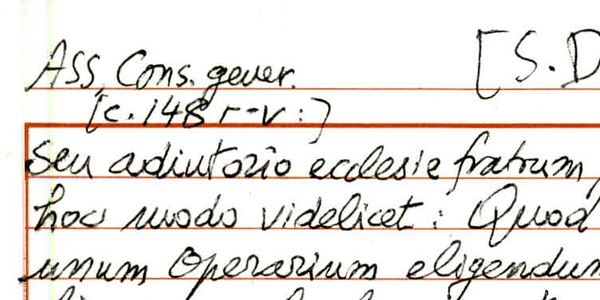 ASS, Cons. gener. [S.D
[c. 148 r-v:]
seu adiutorio ecclesie fratrum,
hoc modo videlicet: Quod
unum Operarium eligendum